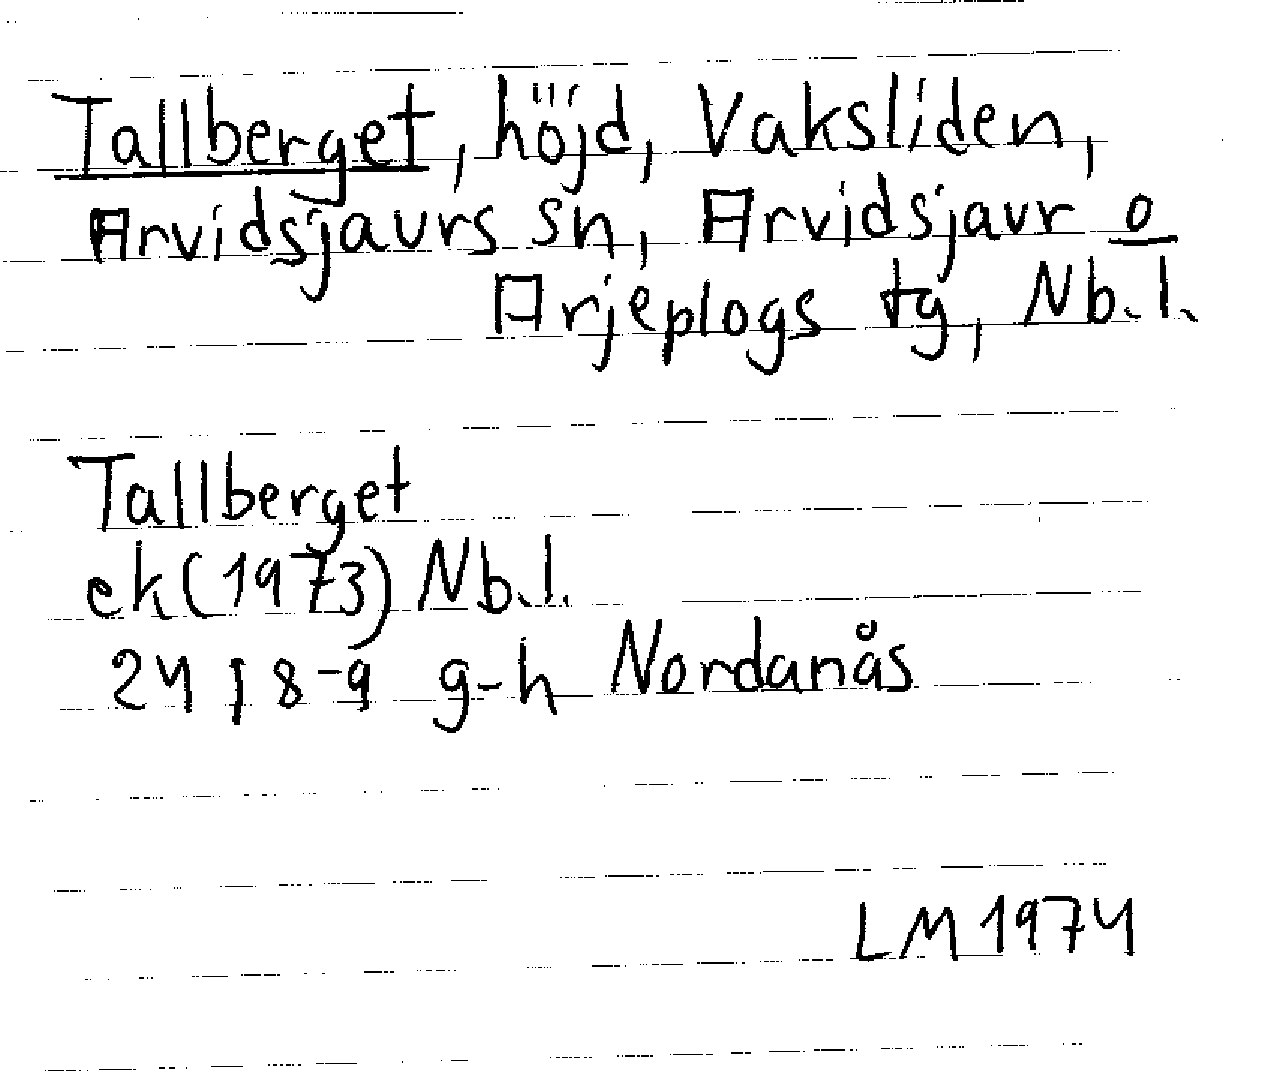 Tallberget, höjd, Vaksliden,
Arvidsjaurs sn, Arvidsjaur o
Arjeplogs tg, Nb.l.
Tallberget
ek (1973) Nb.l.
24 J 8-9 g-h Nordanås
LM 1974